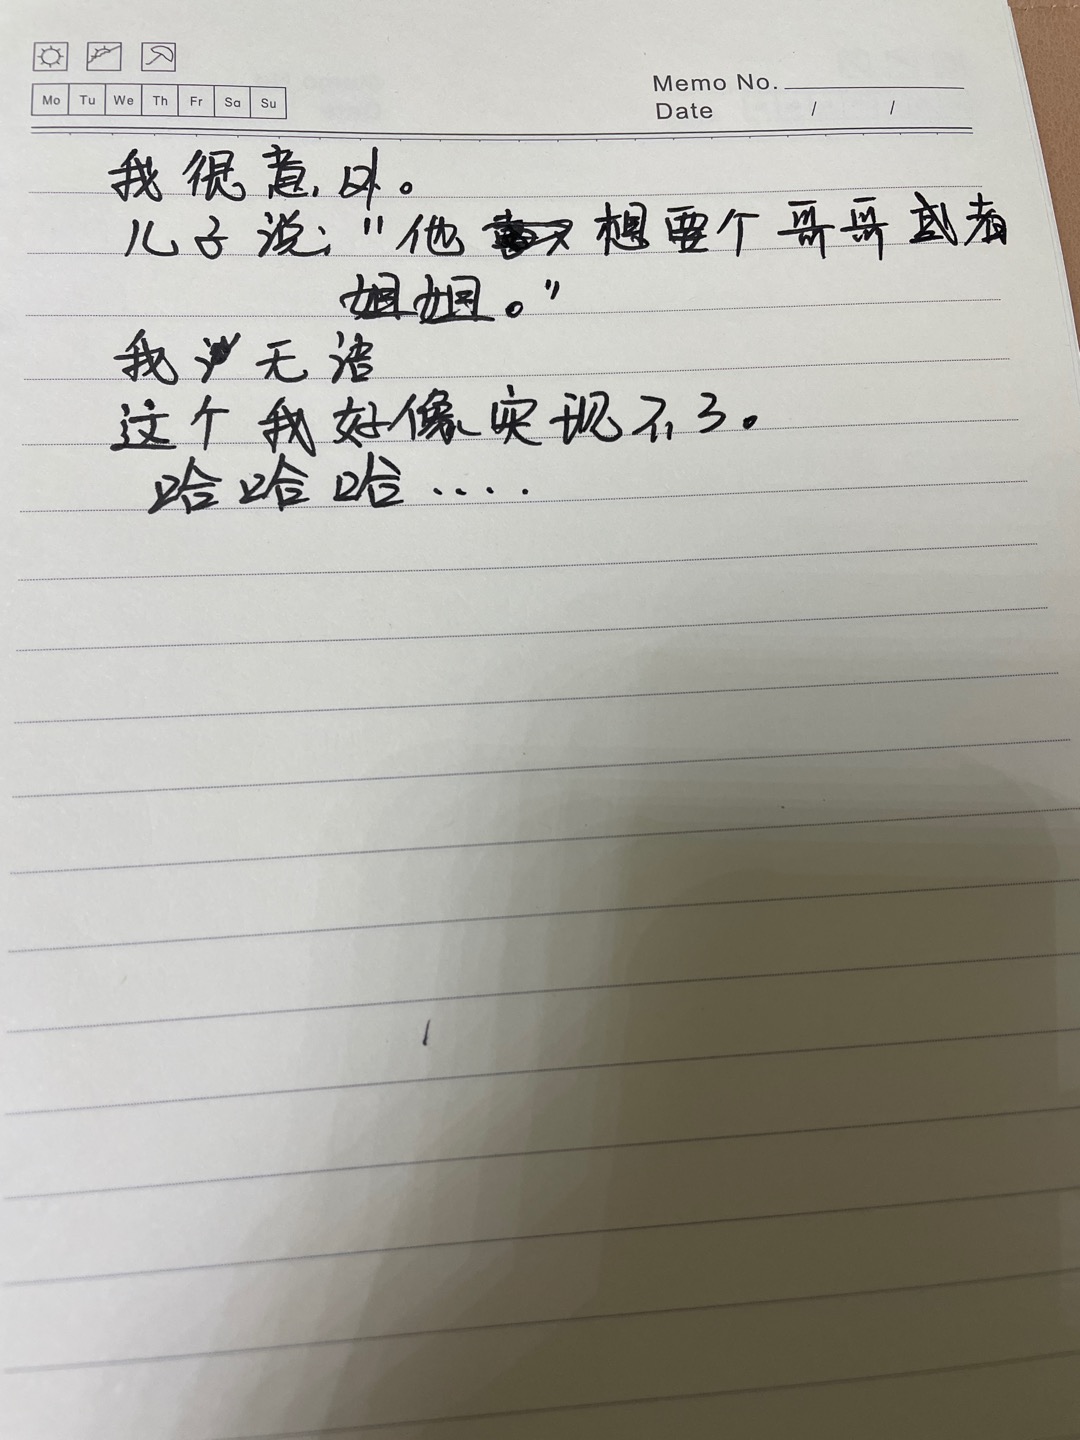 Mo Tu We Th Fr Sa Su
Memo No.
Date / /
我很意外。
儿子说："他想要个哥哥或者
姐姐。"
我无语
这个我好像实现不了。
哈哈哈....